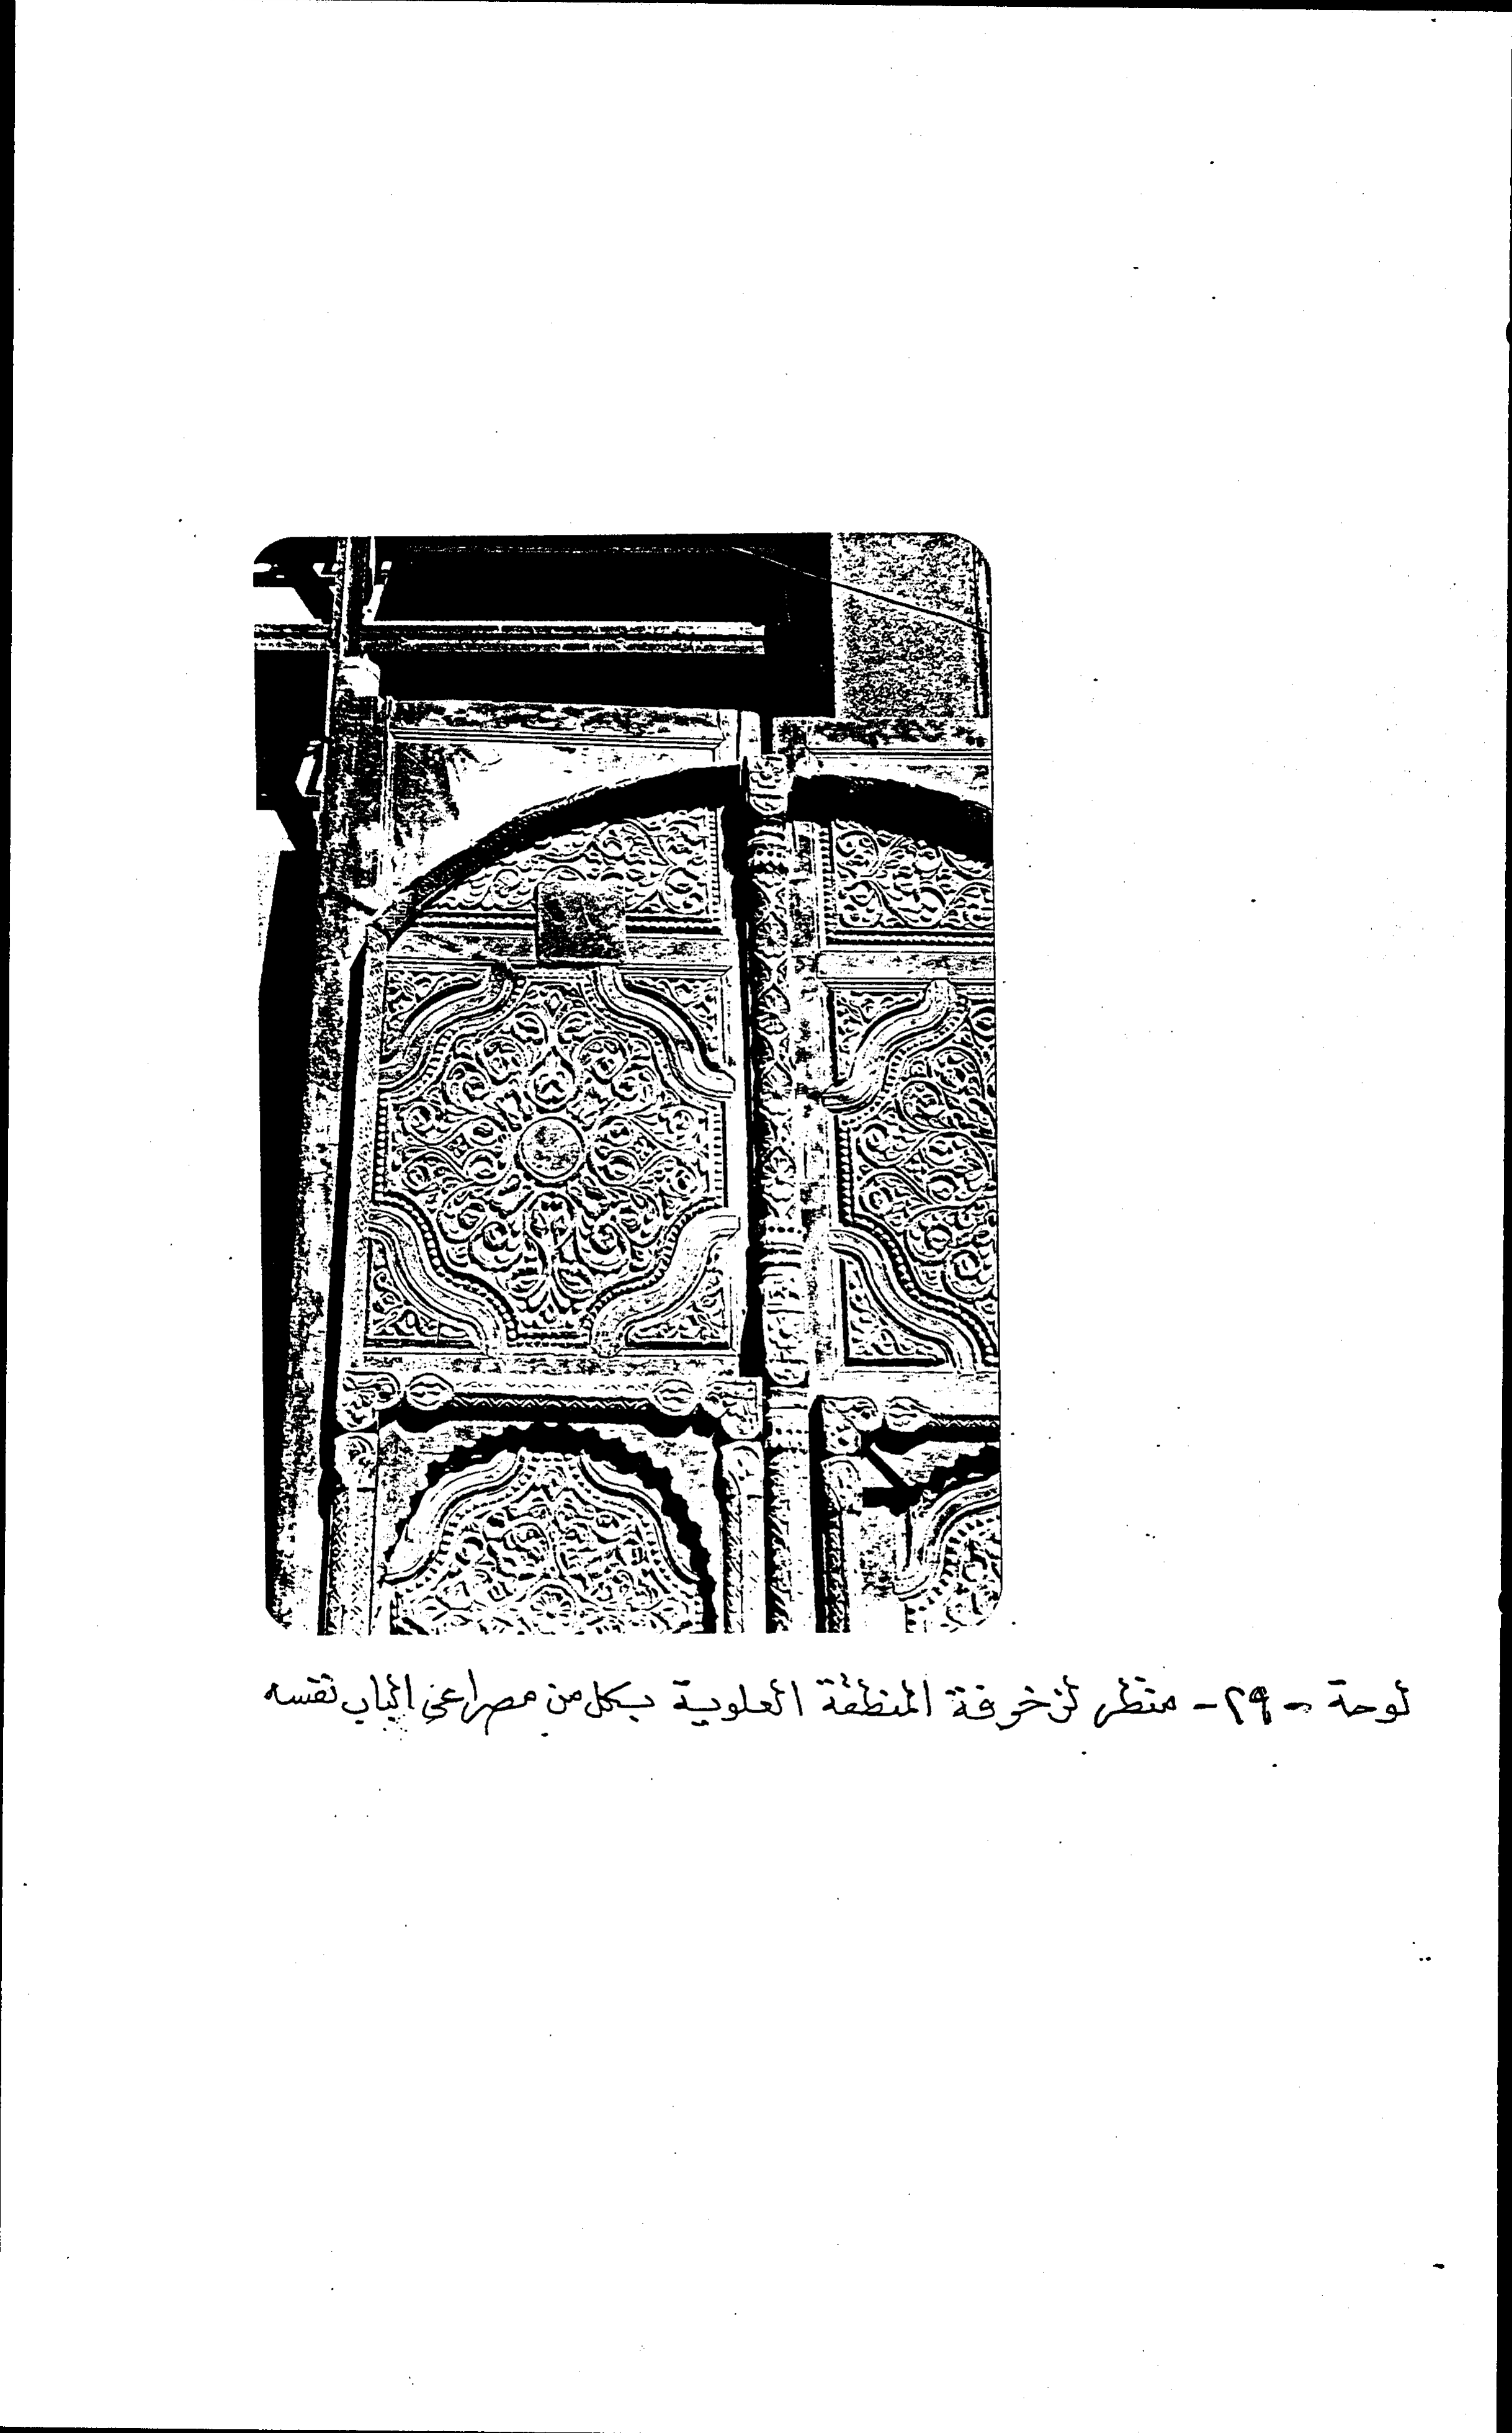 لوحة - ٢٩ - منظر لزخرفة المنطقة العلوية بكل من مصراعي الباب نفسه